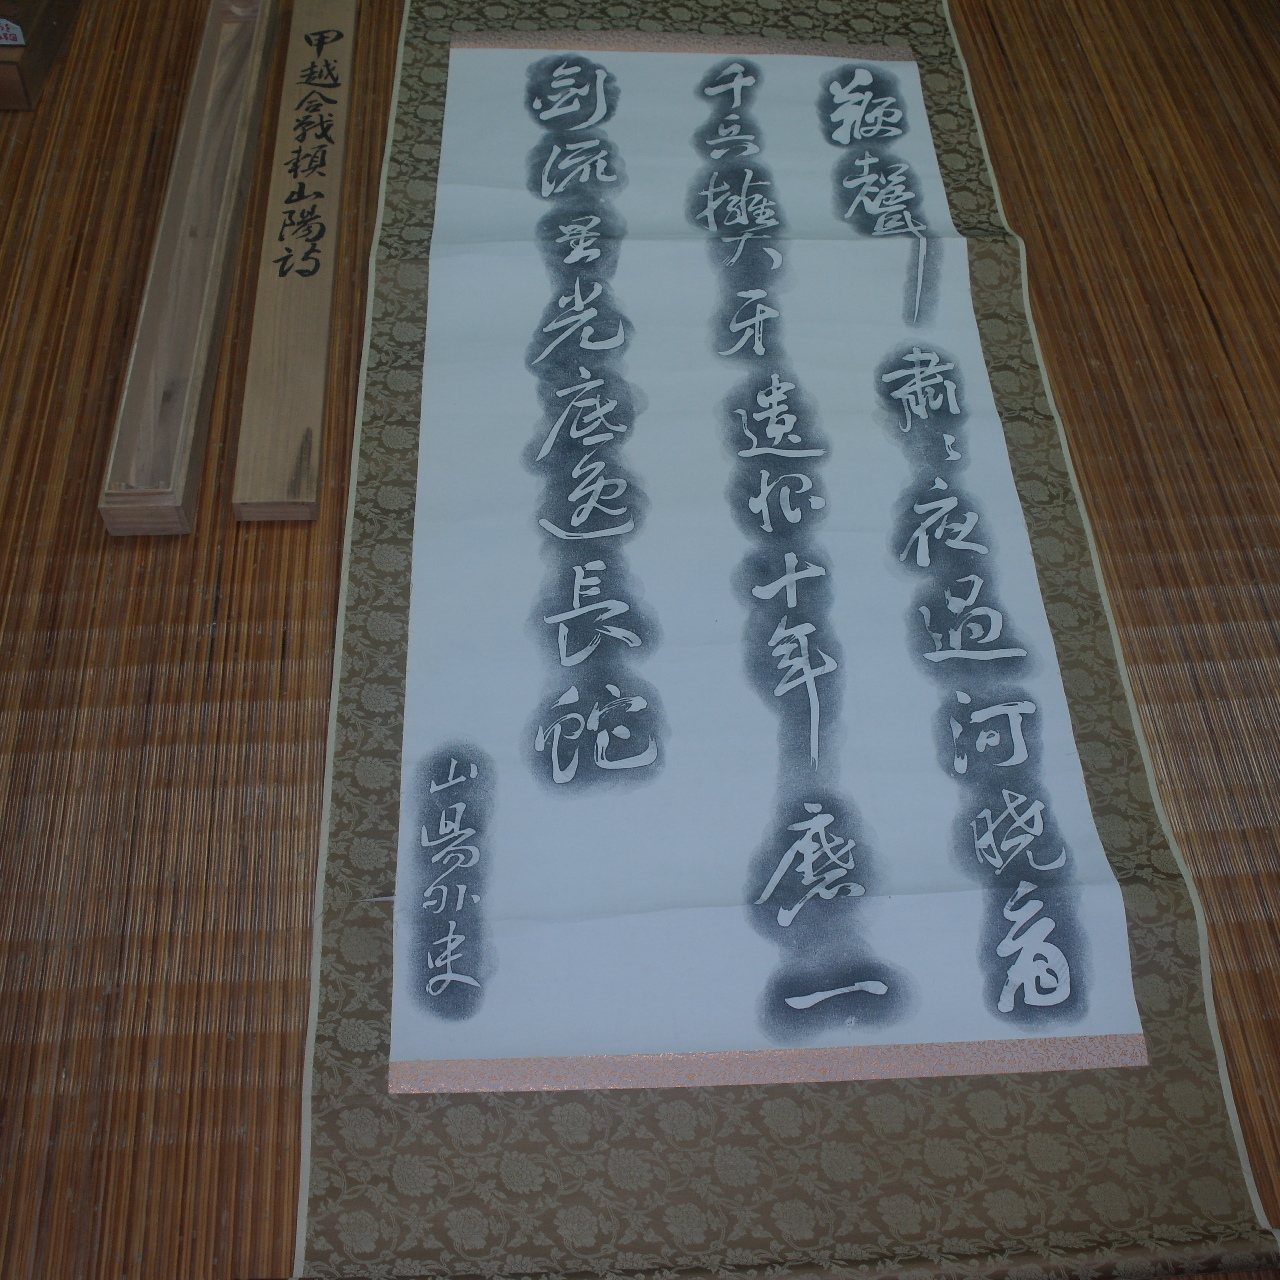 鞭聲肅々夜過河曉看
千兵擁大牙遺恨十年磨一
劍流星光底逸長蛇
山陽外史
甲越合戦頼山陽詩